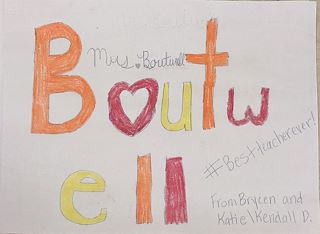 Mrs. Boutwell
B♥utw
ell
#Bestteacherever!
From Brycen and
Katie/Kendall D.